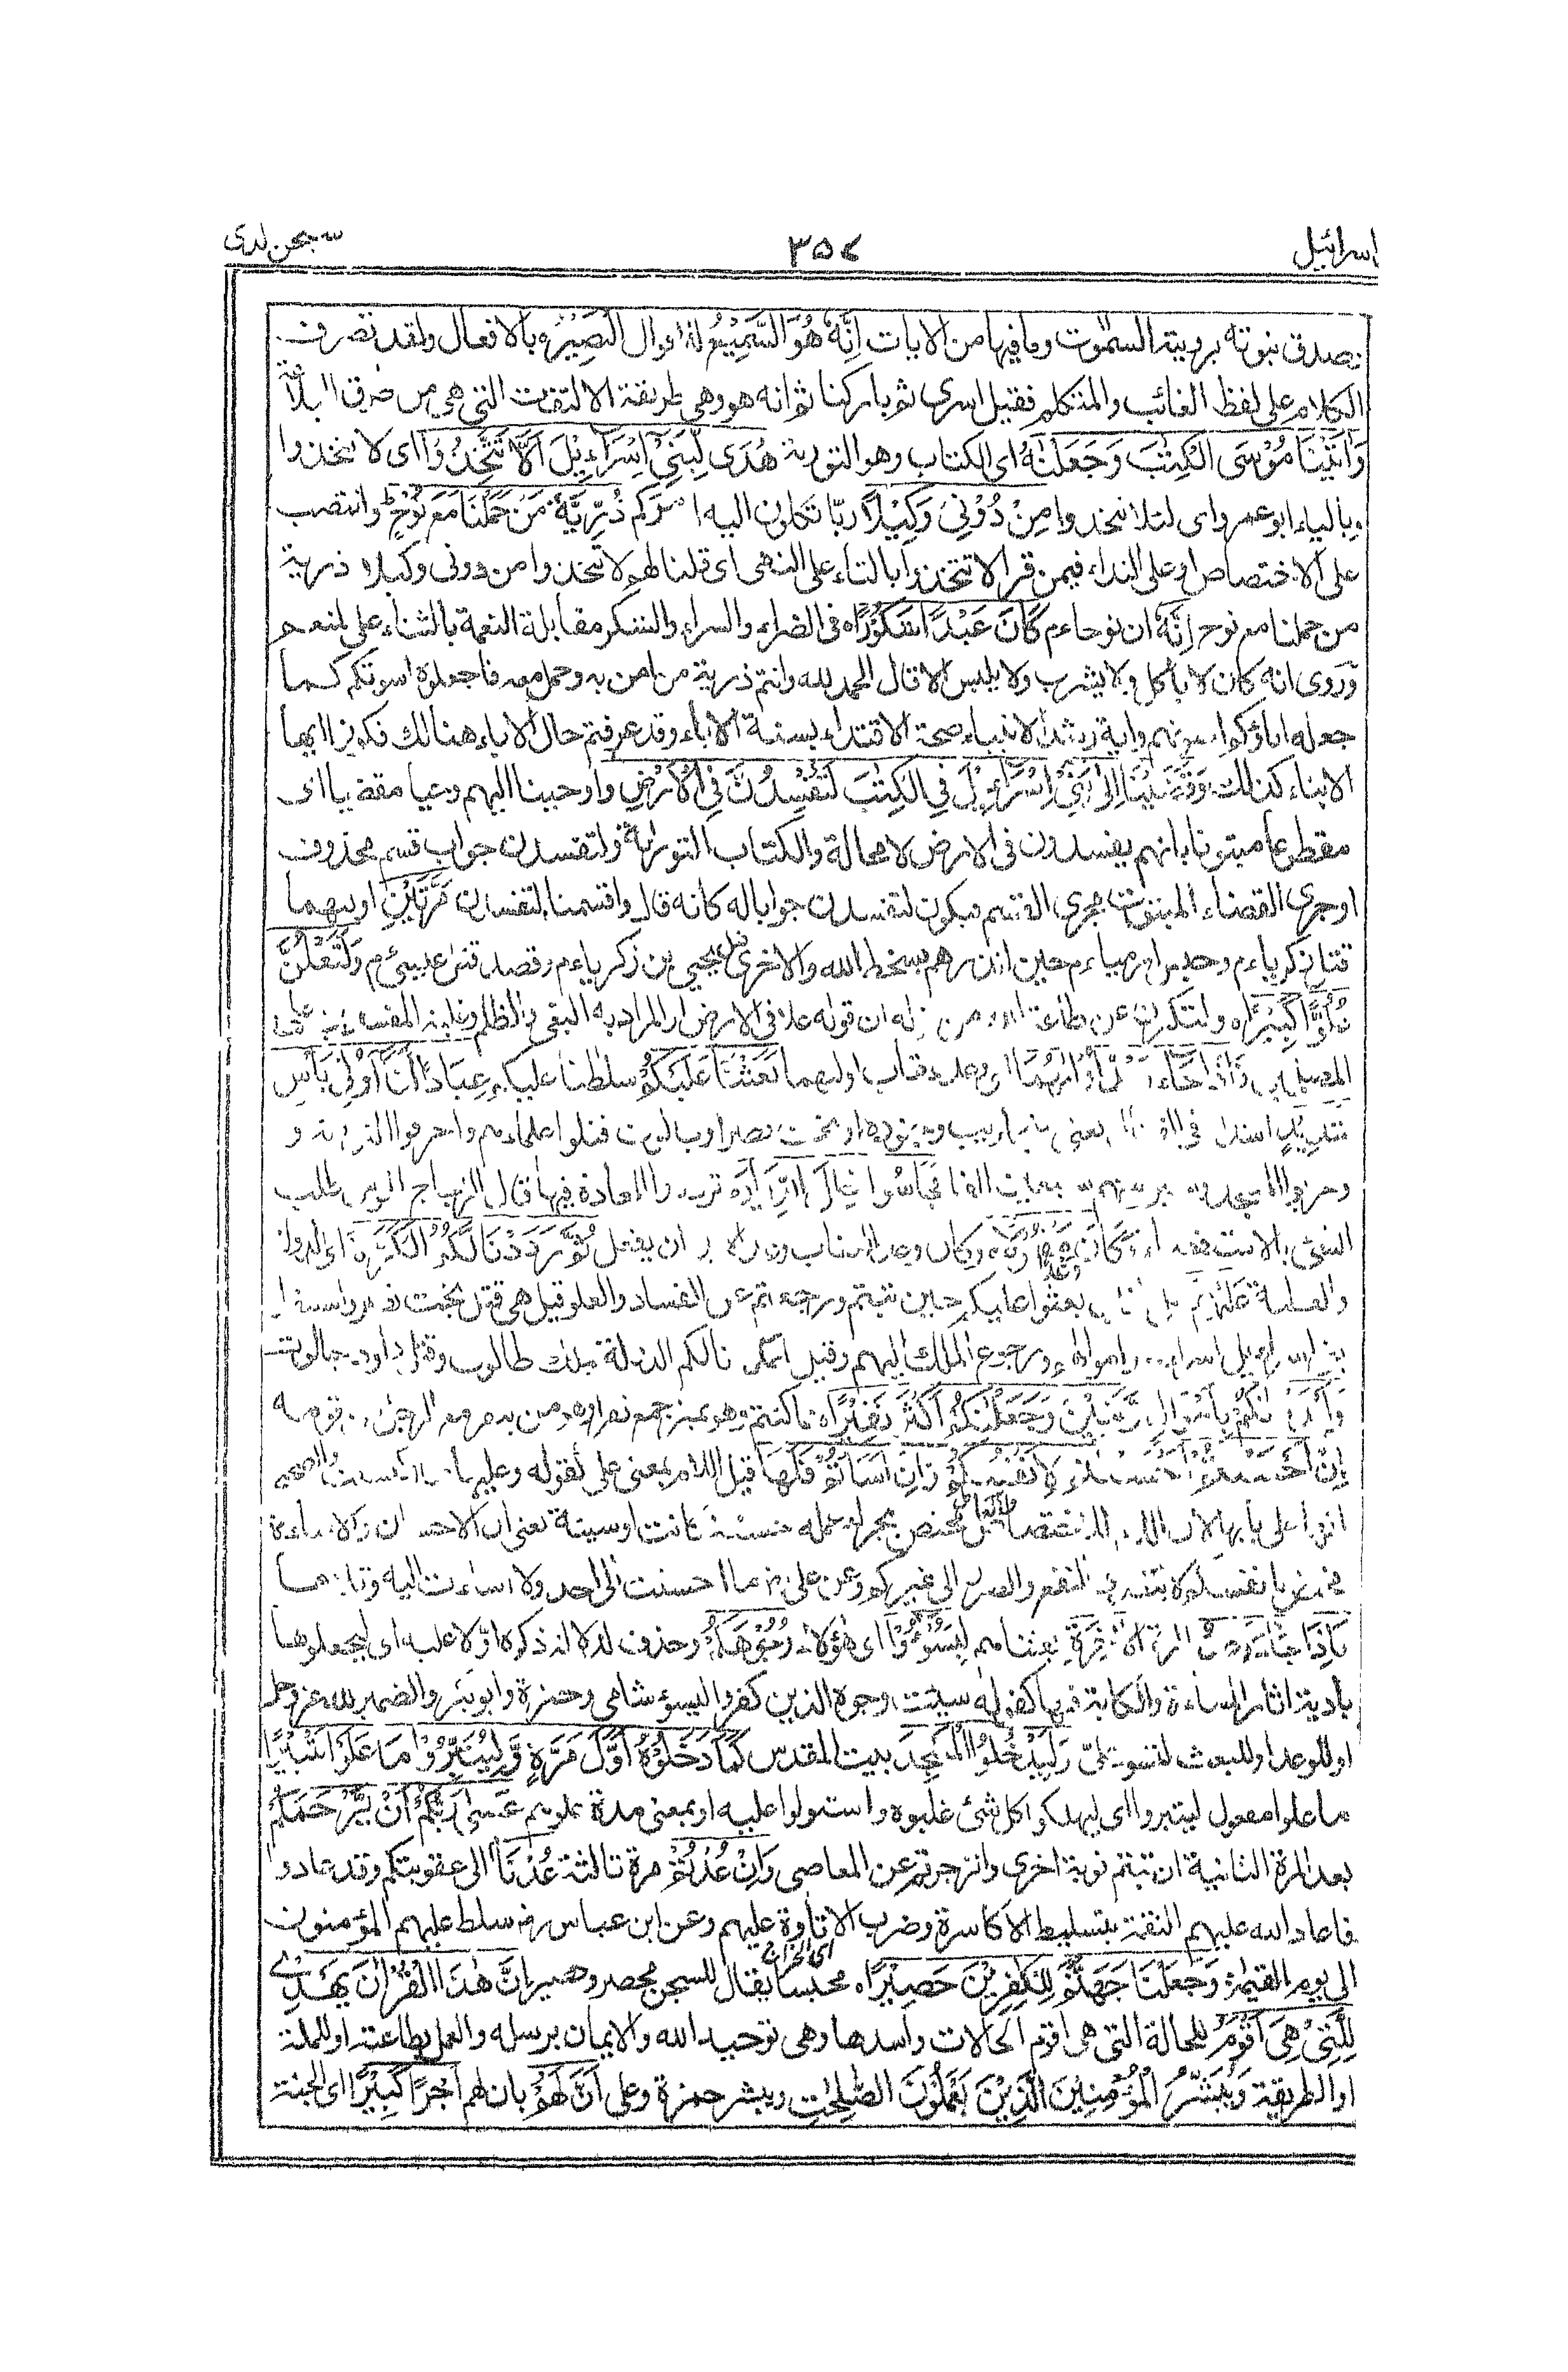 اسرائيل ٣٥٤ سبحن الذى
بصدق نبوته برويته السمٰوت وما فيها من الايات اِنَّهٗ هُوَ السَّمِيْعُ للاقوال الْبَصِيْرُ بالافعال ولقد تصرف
الكلام على لفظ الغائب والمتكلم فقيل اسرى ثم باركنا ثم انه هو وهى طريقة الالتفات التى هى من طرق البلاغة
وَاٰتَيْنَا مُوْسَى الْكِتٰبَ وَجَعَلْنٰهُ اى الكتاب وهو التورية هُدًى لِّبَنِيْ اِسْرَآءِيْلَ اَلَّا تَتَّخِذُوْا اى لا تتخذوا
وبالياء ابو عمرو اى لئلا يتخذوا مِنْ دُوْنِيْ وَكِيْلًا ربّا تكلون اليه امركم ذُرِّيَّةَ مَنْ حَمَلْنَا مَعَ نُوْحٍ وانتصب
على الاختصاص او على النداء فيمن قرا لا تتخذوا بالتاء على النهى اى قلنا لهم لا تتخذوا من دونى وكيلا ذرية
من حملنا مع نوح اِنَّهٗ ان نوحا ءم كَانَ عَبْدًا شَكُوْرًا فى الضراء والسراء والشكر مقابلة النعمة بالثناء على المنعم
وروى انه كان لا ياكل ولا يشرب ولا يلبس الا قال الحمد لله وانتم ذرية من امن به وحمل معه فاجعلوه اسوتكم كما
جعله اباؤكم اسوتهم واية رشد الابناء صحة الاقتداء بسنة الاباء وقد عرفتم حال الاباء هنالك فكونوا ايها
الابناء كذلك وَقَضَيْنَا اِلٰى بَنِيْ اِسْرَآءِيْلَ فِي الْكِتٰبِ لَتُفْسِدُنَّ فِي الْاَرْضِ واوحينا اليهم وحيا مقضيا اى
مقطوعا مبتوتا بانهم يفسدون فى الارض لا محالة والكتاب التورٰية ولتفسدن جواب قسم محذوف
او جرى القضاء المبتوت مجرى القسم فيكون لتفسدن جوابا له كانه قال واقسمنا لتفسدن مَرَّتَيْنِ اوليهما
قتل زكرياءم وحبس ارمياءم حين انذرهم سخط الله والاخرى قتل يحيى بن زكرياءم وقصد قتل عيسىءم وَلَتَعْلُنَّ
عُلُوًّا كَبِيْرًا ولتتكبرن عن طاعة الله من قوله ان فرعون علا فى الارض والمراد به البغى والظلم وغلبة المفسدين على
المصلحين فَاِذَا جَآءَ وَعْدُ اُوْلٰىهُمَا اى وعد عقاب اوليهما بَعَثْنَا عَلَيْكُمْ سلطنا عليكم عِبَادًا لَّنَآ اُولِيْ بَاْسٍ
شَدِيْدٍ اشداء فى القتال يعنى سنجاريب وجنوده او بخت نصر او جالوت قتلوا علماءهم واحرقوا التورٰية و
وخربوا المسجد وسبوا منهم سبعين الفا فَجَاسُوْا خِلٰلَ الدِّيَارِ ترددوا للغارة فيها قال الزجاج الجوس طلب
الشئ بالاستقصاء وَكَانَ وَعْدًا مَّفْعُوْلًا وكان وعد العقاب وعدا لا بد ان يفعل ثُمَّ رَدَدْنَا لَكُمُ الْكَرَّةَ اى الدولة
والغلبة عَلَيْهِمْ على الذين بعثوا عليكم حين تبتم ورجعتم عن الفساد والعلو قيل هى قتل بخت نصر واستنقاذ
بنى اسرائيل اسراهم واموالهم ورجوع الملك اليهم وقيل اعطينا لكم الدولة بملك طالوت وقتل داود جالوت
وَاَمْدَدْنٰكُمْ بِاَمْوَالٍ وَّبَنِيْنَ وَجَعَلْنٰكُمْ اَكْثَرَ نَفِيْرًا مما كنتم وهو تمييز جمع نفر وهو من ينفر مع الرجل من قومه
اِنْ اَحْسَنْتُمْ اَحْسَنْتُمْ لِاَنْفُسِكُمْ وَاِنْ اَسَاْتُمْ فَلَهَا قيل اللام بمعنى على لقوله وعليها ما اكتسبت والصحيح
انها على بابها لان اللام للاختصاص والعامل مختص بجزاء عمله حسنة كانت او سيئة يعنى ان الاحسان والاساءة
مختص بانفسكم لا يتعدى النفع والضرر الى غيركم وعن على رض ما احسنت الى احد ولا اسأت اليه وتلاها
فَاِذَا جَآءَ وَعْدُ المرة الْاٰخِرَةِ بعثناهم لِيَسُوْٓءٗا اى هؤلاء وُجُوْهَكُمْ وحذف لدلالة ذكره اوّلا عليه اى ليجعلوها
بادية اثار المساءة والكابة فيها كقوله سيئت وجوه الذين كفروا ليسوء شامى وحمزة وابوبكر والضمير لله عز وجل
او للوعد او للبعث لنسوء علىّ وَلِيَدْخُلُوا الْمَسْجِدَ بيت المقدس كَمَا دَخَلُوْهُ اَوَّلَ مَرَّةٍ وَّلِيُتَبِّرُوْا مَا عَلَوْا تَتْبِيْرًا
ما علوا مفعول ليتبروا اى ليهلكوا كل شئ غلبوه واستولوا عليه او بمعنى مدة علوهم عَسٰى رَبُّكُمْ اَنْ يَّرْحَمَكُمْ
بعد المرة الثانية ان تبتم توبة اخرى وانزجرتم عن المعاصى وَاِنْ عُدْتُّمْ مرة ثالثة عُدْنَا الى عقوبتكم وقد عادوا
فاعاد الله عليهم النقمة بتسليط الاكاسرة وضرب الاتاوة عليهم وعن ابن عباس رض سلط عليهم المؤمنون
الى يوم القيٰمة وَجَعَلْنَا جَهَنَّمَ لِلْكٰفِرِيْنَ حَصِيْرًا محبسا يقال للسجن محصر وحصير اِنَّ هٰذَا الْقُرْاٰنَ يَهْدِيْ
لِلَّتِيْ هِيَ اَقْوَمُ للحالة التى هى اقوم الحالات واسدها وهى توحيد الله والايمان برسله والعمل بطاعته او للملة
او الطريقة وَيُبَشِّرُ الْمُؤْمِنِيْنَ الَّذِيْنَ يَعْمَلُوْنَ الصّٰلِحٰتِ ويبشر حمزة وعلى اَنَّ لَهُمْ بان لهم اَجْرًا كَبِيْرًا اى الجنة